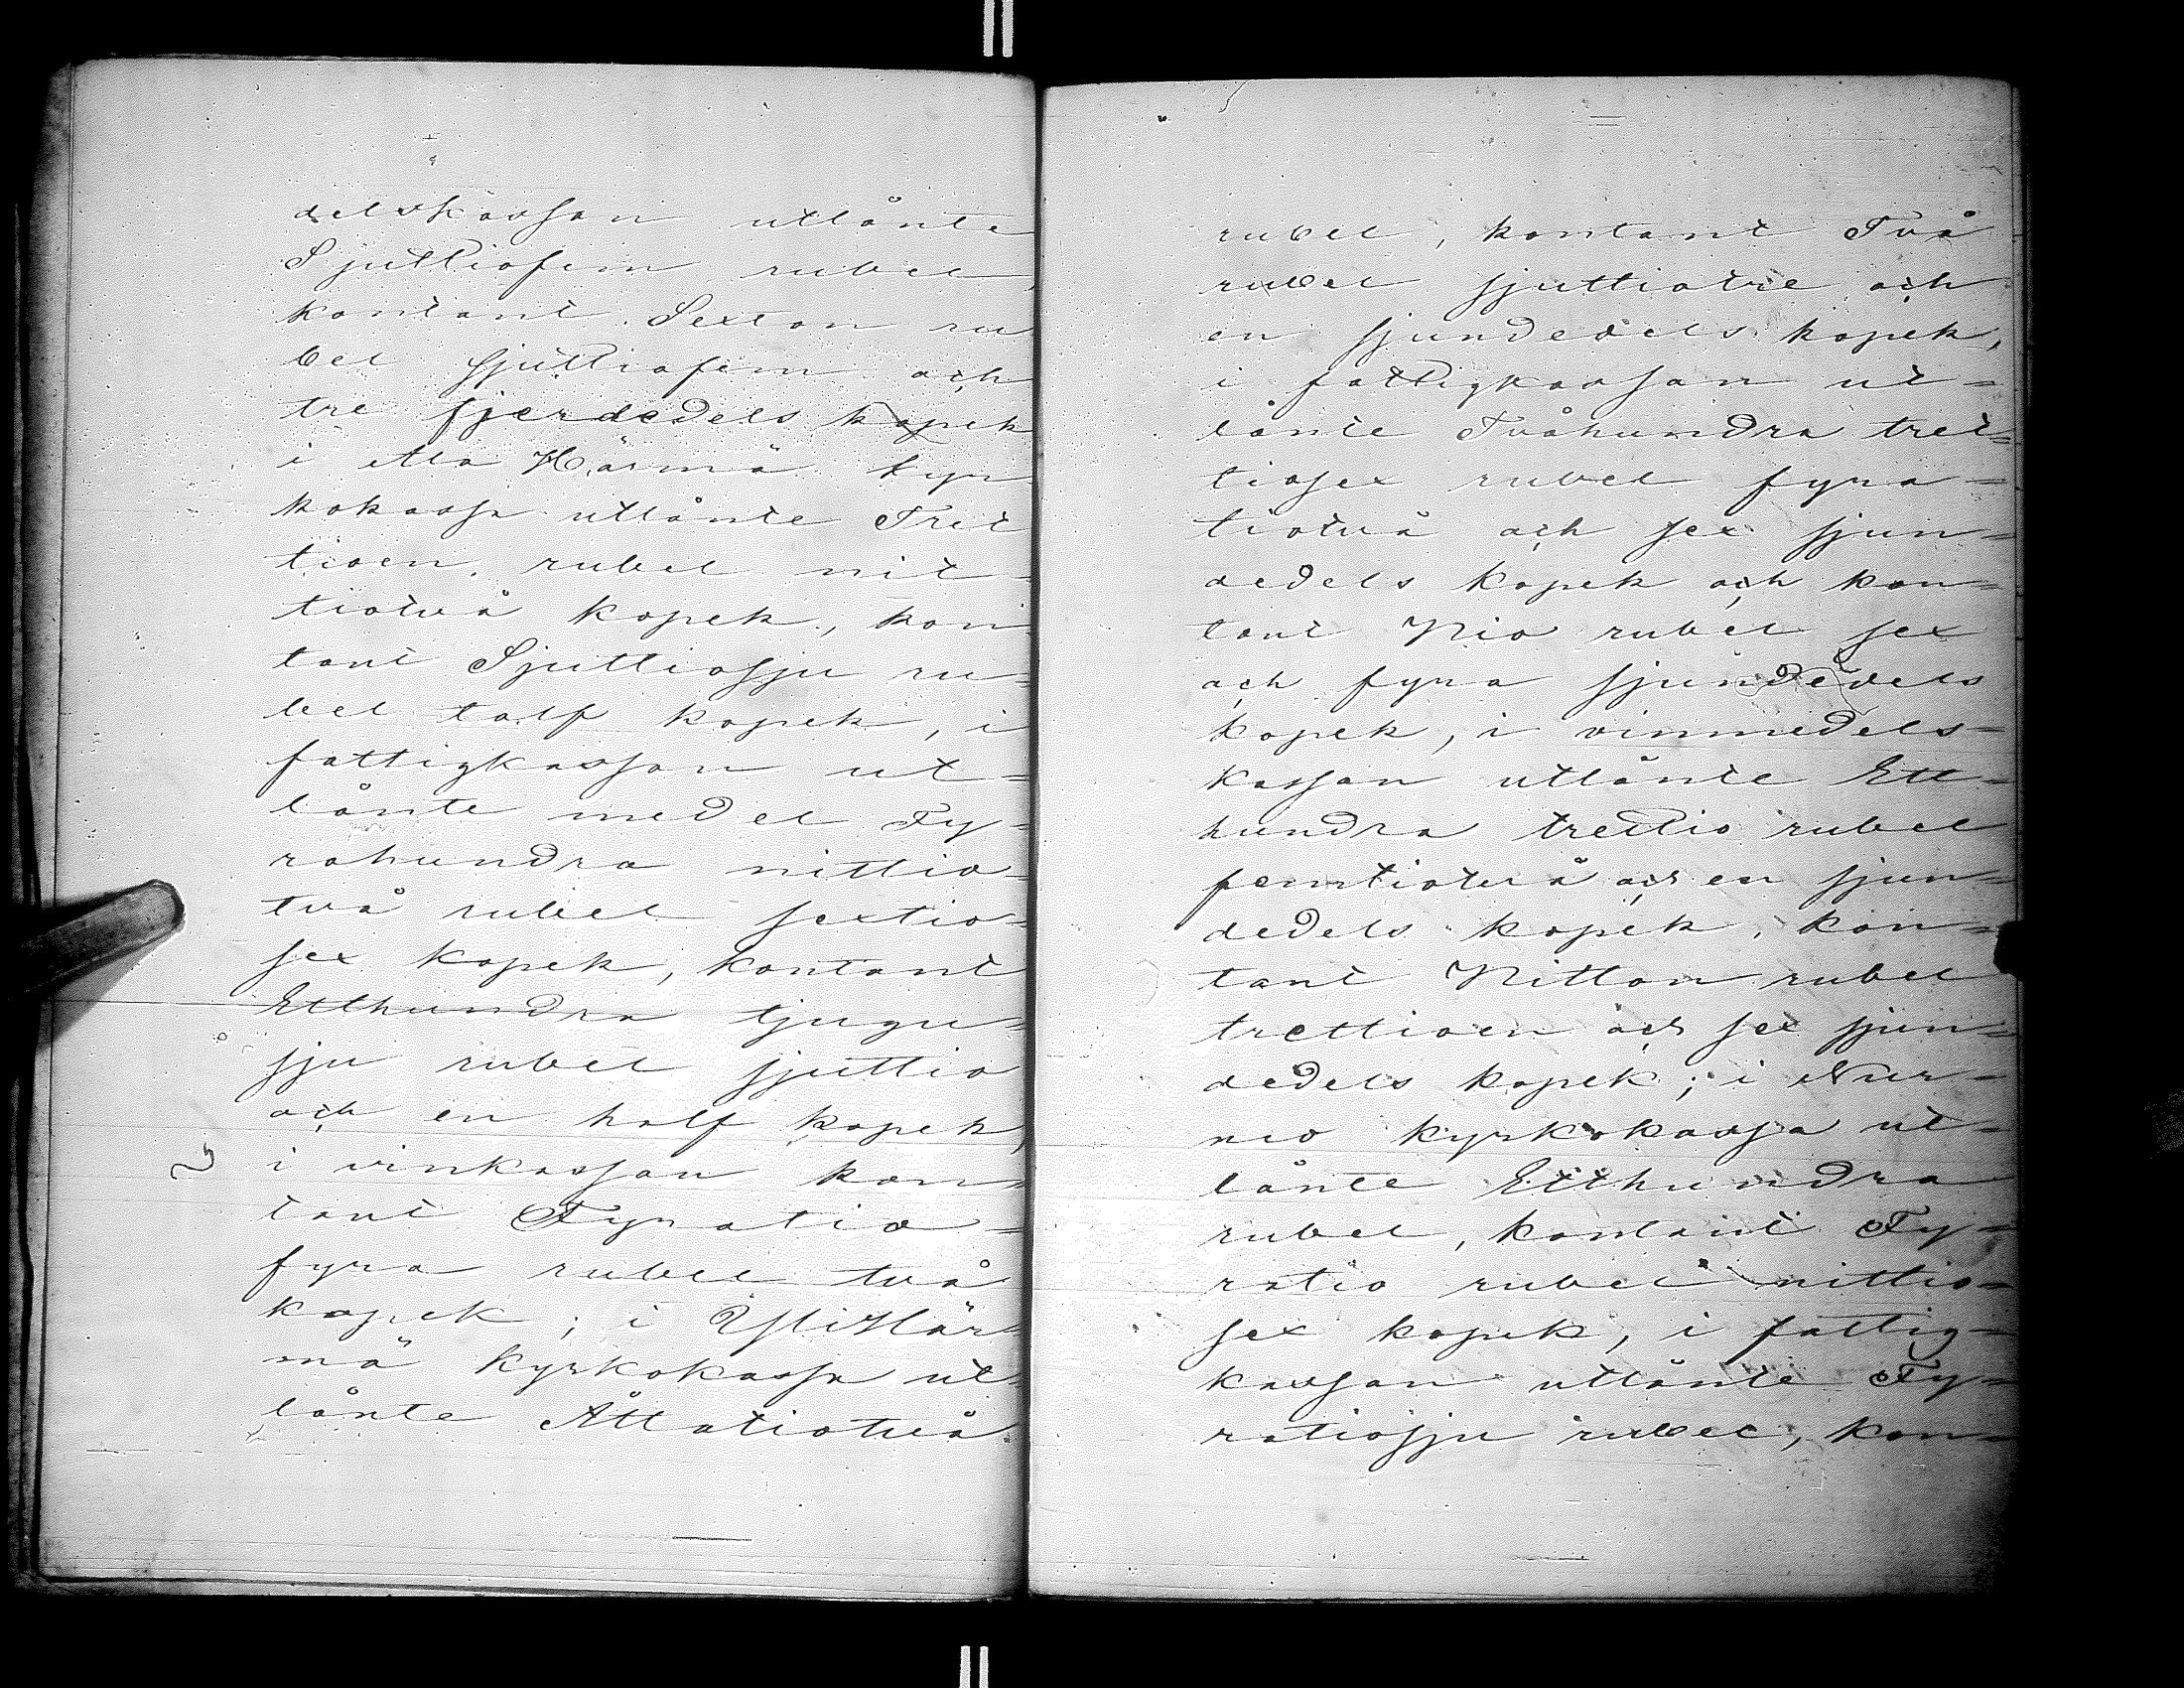 delskassan utlånte
Sjuttiofem rubel,
kontant Sexton ru
bel sjuttiofem och
tre fjerdedels kopek
i Ala Härmä kyr
kokassa utlånte Tret
tioen rubel nit-
tiotvå kopek, kon
tant Sjuttiosju ru=
bel tolf kopek, i
fattigkassan ut=
lånte medel Fy=
rahundra nittio=
två rubel sextio=
sex kopek, kontant
Etthundra tjugu=
sju rubel sjuttio
och en half kopek,
i vinkassan kon=
tant Fyratio=
fyra rubel två
kopek; i Ylihär
mä kyrkokassa ut=
lånte Åttatiotvå
rubel, kontant Två
rubel sjuttiotre och
en sjundedels kopek,
i fattigkassan ut=
lånte Tvåhundra tret=
tiosex rubel fyra=
tiotvå och sex sjun=
dedels kopek och kon=
tant Nio rubel sex
och fyra sjundedels
kopek, i vinmedels=
kassan utlånte Ett=
hundra trettio rubel
femtiotvå och en sjun=
dedels kopek, kon=
tant Nitton rubel
trettioen och sex sjun=
dedels kopek; i Nur=
mo kyrkokassa ut=
lånte Etthundra
rubel, kontant Fy=
ratio rubel nittio=
sex kopek, i fattig=
kassan utlånte Fy=
ratiosju rubel, kon=